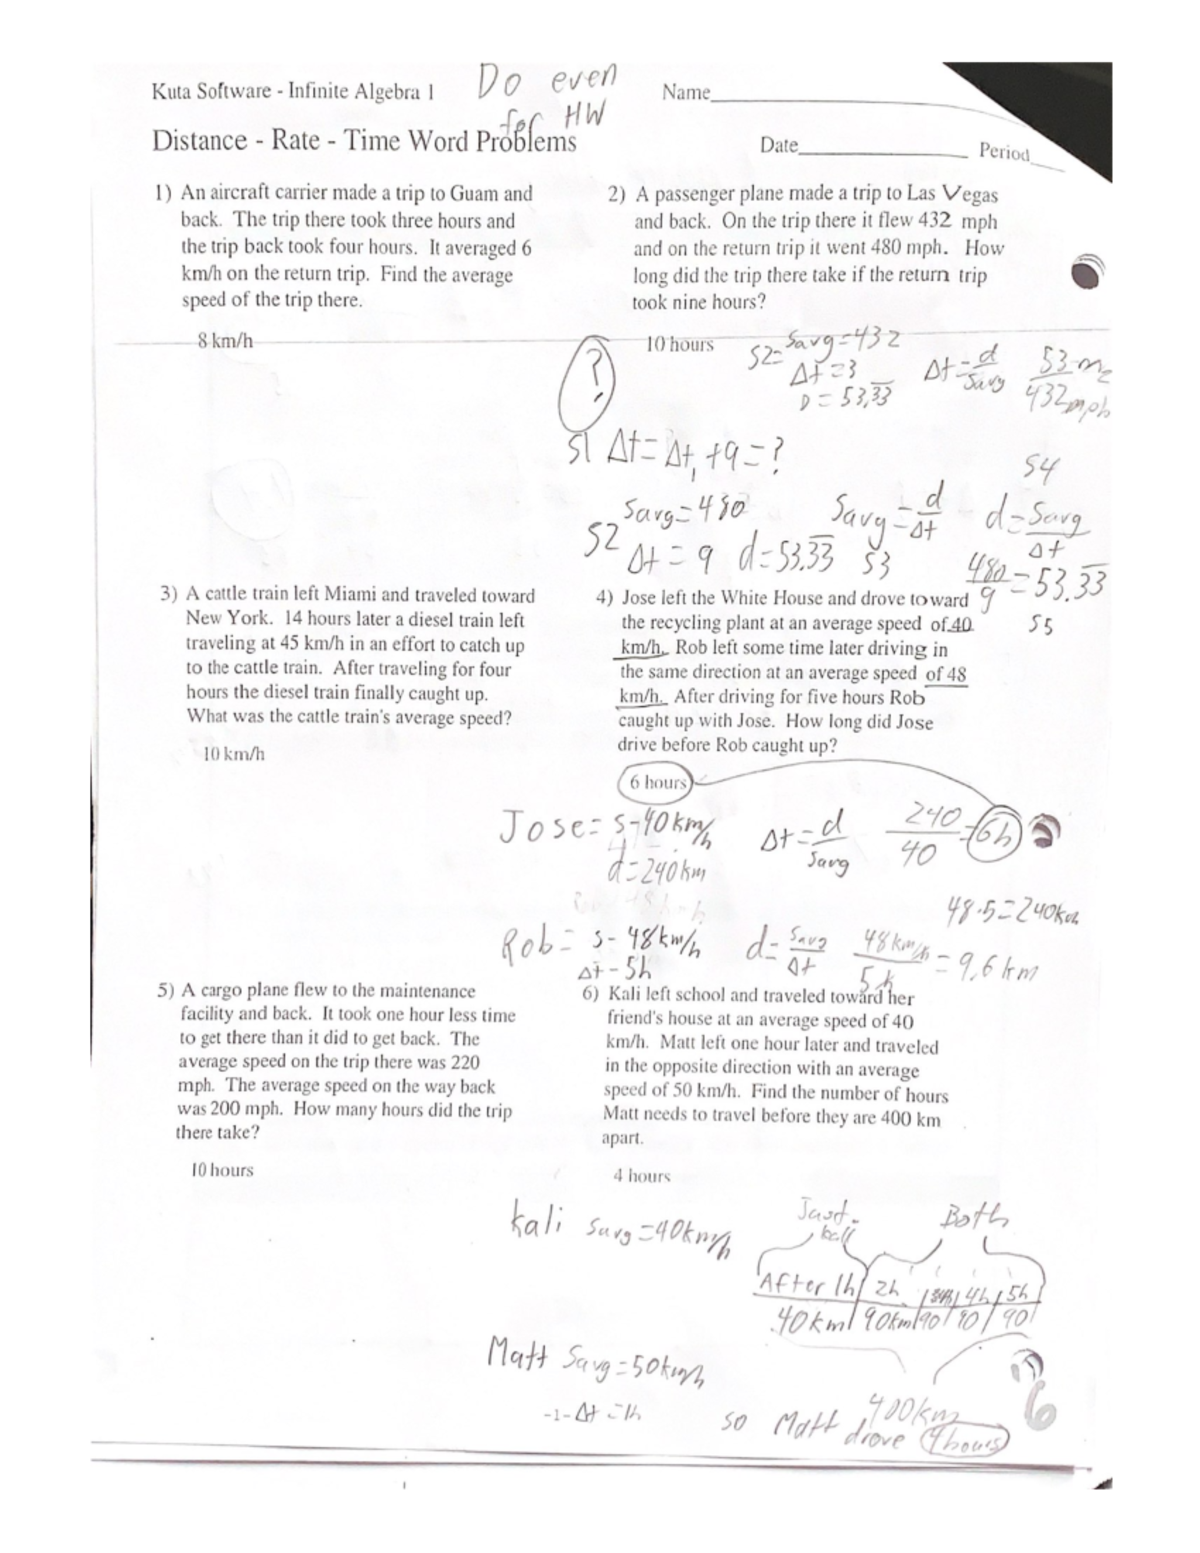 Kuta Software - Infinite Algebra 1
Do even
for HW
Name
Distance - Rate - Time Word Problems
Date
Period
1) An aircraft carrier made a trip to Guam and
back. The trip there took three hours and
the trip back took four hours. It averaged 6
km/h on the return trip. Find the average
speed of the trip there.
8 km/h
2) A passenger plane made a trip to Las Vegas
and back. On the trip there it flew 432 mph
and on the return trip it went 480 mph. How
long did the trip there take if the return trip
took nine hours?
10 hours
?
S2= Savg=432
Δt=3
D=53.33
Δt=d/Savg
432mph
S1 Δt=Δt1+9=?
S2 Savg=480
Δt=9 d=53.33
Savg=d/Δt
S3
S4
d=Savg/Δt
480/9=53.33
S5
3) A cattle train left Miami and traveled toward
New York. 14 hours later a diesel train left
traveling at 45 km/h in an effort to catch up
to the cattle train. After traveling for four
hours the diesel train finally caught up.
What was the cattle train's average speed?
10 km/h
4) Jose left the White House and drove toward
the recycling plant at an average speed of 40
km/h. Rob left some time later driving in
the same direction at an average speed of 48
km/h. After driving for five hours Rob
caught up with Jose. How long did Jose
drive before Rob caught up?
6 hours
Jose= s-40km/h
d=240km
Δt=d/Savg
240/40=6h
48·5=240km
Rob= s-48km/h
Δt-5h
d=Savg/Δt
48km/h/5h=9,6km
5) A cargo plane flew to the maintenance
facility and back. It took one hour less time
to get there than it did to get back. The
average speed on the trip there was 220
mph. The average speed on the way back
was 200 mph. How many hours did the trip
there take?
10 hours
6) Kali left school and traveled toward her
friend's house at an average speed of 40
km/h. Matt left one hour later and traveled
in the opposite direction with an average
speed of 50 km/h. Find the number of hours
Matt needs to travel before they are 400 km
apart.
4 hours
Kali Savg=40km/h
Both
After 1h/ 2h 4h 5h
40km/ 90km/90/90/90
Matt Savg=50km/h
Δt=1h
400km
so Matt drove 4hours
-1-